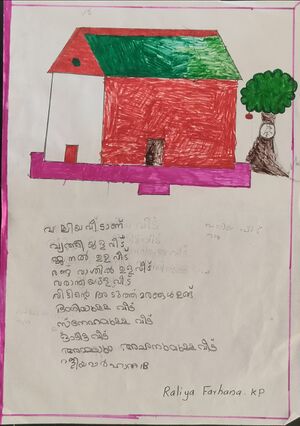 വലിയ വീടാണ്
വൃത്തിയുള്ള വീട്
ജനൽ ഉള്ള വീട്
രണ്ട് വാതിൽ ഉള്ള വീട്
വരാന്തയുള്ള വീട്
വീടിന്റെ അടുത്ത് മരങ്ങൾ ഉണ്ട്
ഭംഗിയുള്ള വീട്
സ്നേഹമുള്ള വീട്
വീട്
വീട്
Raliya Farhana. KP